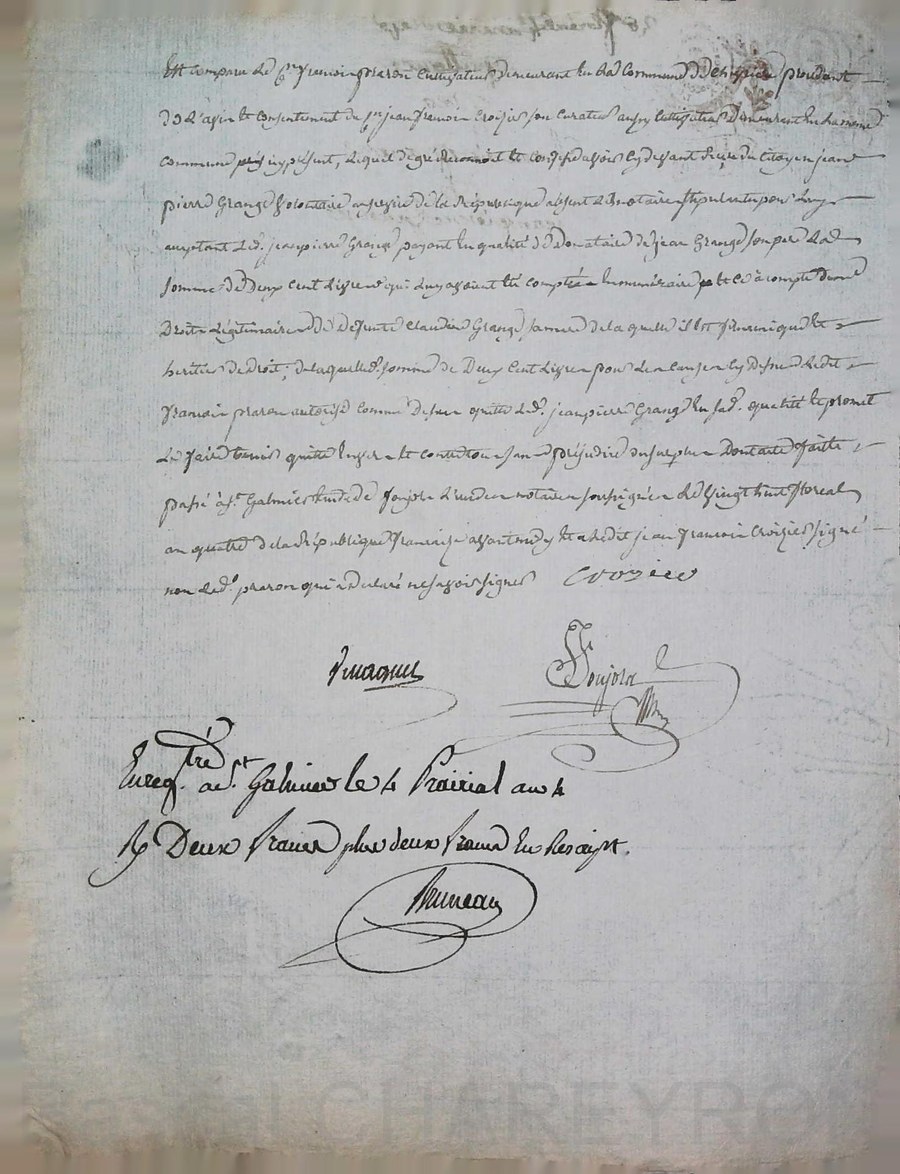 Est comparu le Cen françois praron cultivateur demeurant en la Commune D procédant
de l'avis et consentement de sr jean françois Croizier son curateur aussy cultivateur Demeurant en la meme
commune icy présent, lequel de gré Reconnoit et confesse avoir cy devant Reçu du citoyen jean
pierre Grange volontaire au service de la République absent le notaire stipulant pour luy
acceptant led. jean pierre Grange payant en qualité de donataire de jean Grange son pere la
somme de Deux cent livres qui luy avoient été comptée en numéraire et ce à compte des
Droits Légitimaires de Defunte Claudine Grange sa mere de laquelle il est fils unique et
heritier de droit, de laquelle somme de Deux cent livres pour les causes cy dessus ledit
françois praron autorisé comme dessus quitte led. jean pierre Grange en sad. qualité et promet
le faire tenir quitte envers et contre tous sans préjudice du surplus Dont acte faitte
passé à st Galmier étude de Fonjols l'un des notaires soussignés le vingt huit floreal
an quatre de la République française et a ledit jean françois Croizier signé
non led. praron qui a declaré ne savoir signer Crozier
Fonjols
Enregtré a st. Galmier le 4 Prairial an 4
R Deux francs plus deux francs En Rescript.
Bruneau
CHAREYRON